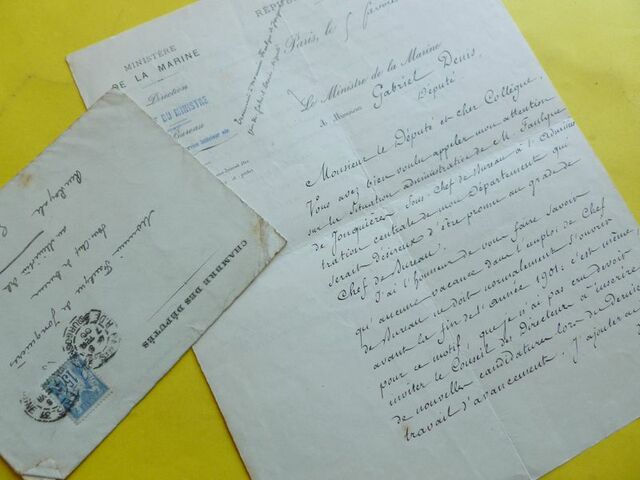 MINISTÈRE
DE LA MARINE
Direction
DU MINISTRE
Bureau
Paris, le 5
Le Ministre de la Marine
à Monsieur Gabriel Denis,
Député
Monsieur le Député et cher Collègue,
Vous avez bien voulu appeler mon attention
sur la situation administrative de M. Faulque
de Jonquières Sous-Chef de Bureau à l'Adminis
tration centrale de mon Département qui
serait désireux d'être promu au grade de
Chef de Bureau.
J'ai l'honneur de vous faire savoir
qu'aucune vacance dans l'emploi de Chef
de Bureau ne doit normalement s'ouvrir
avant la fin de l'année 1901: c'est même
pour ce motif que je n'ai pas cru devoir
inviter le Conseil des Directeurs à inscrire
de nouvelles candidatures lors du dernier
travail d'avancement. J'ajouter
CHAMBRE DES DÉPUTÉS
Monsieur Faulque de Jonquières
Sous Chef de bureau
au Ministère de
Rue Royale
15